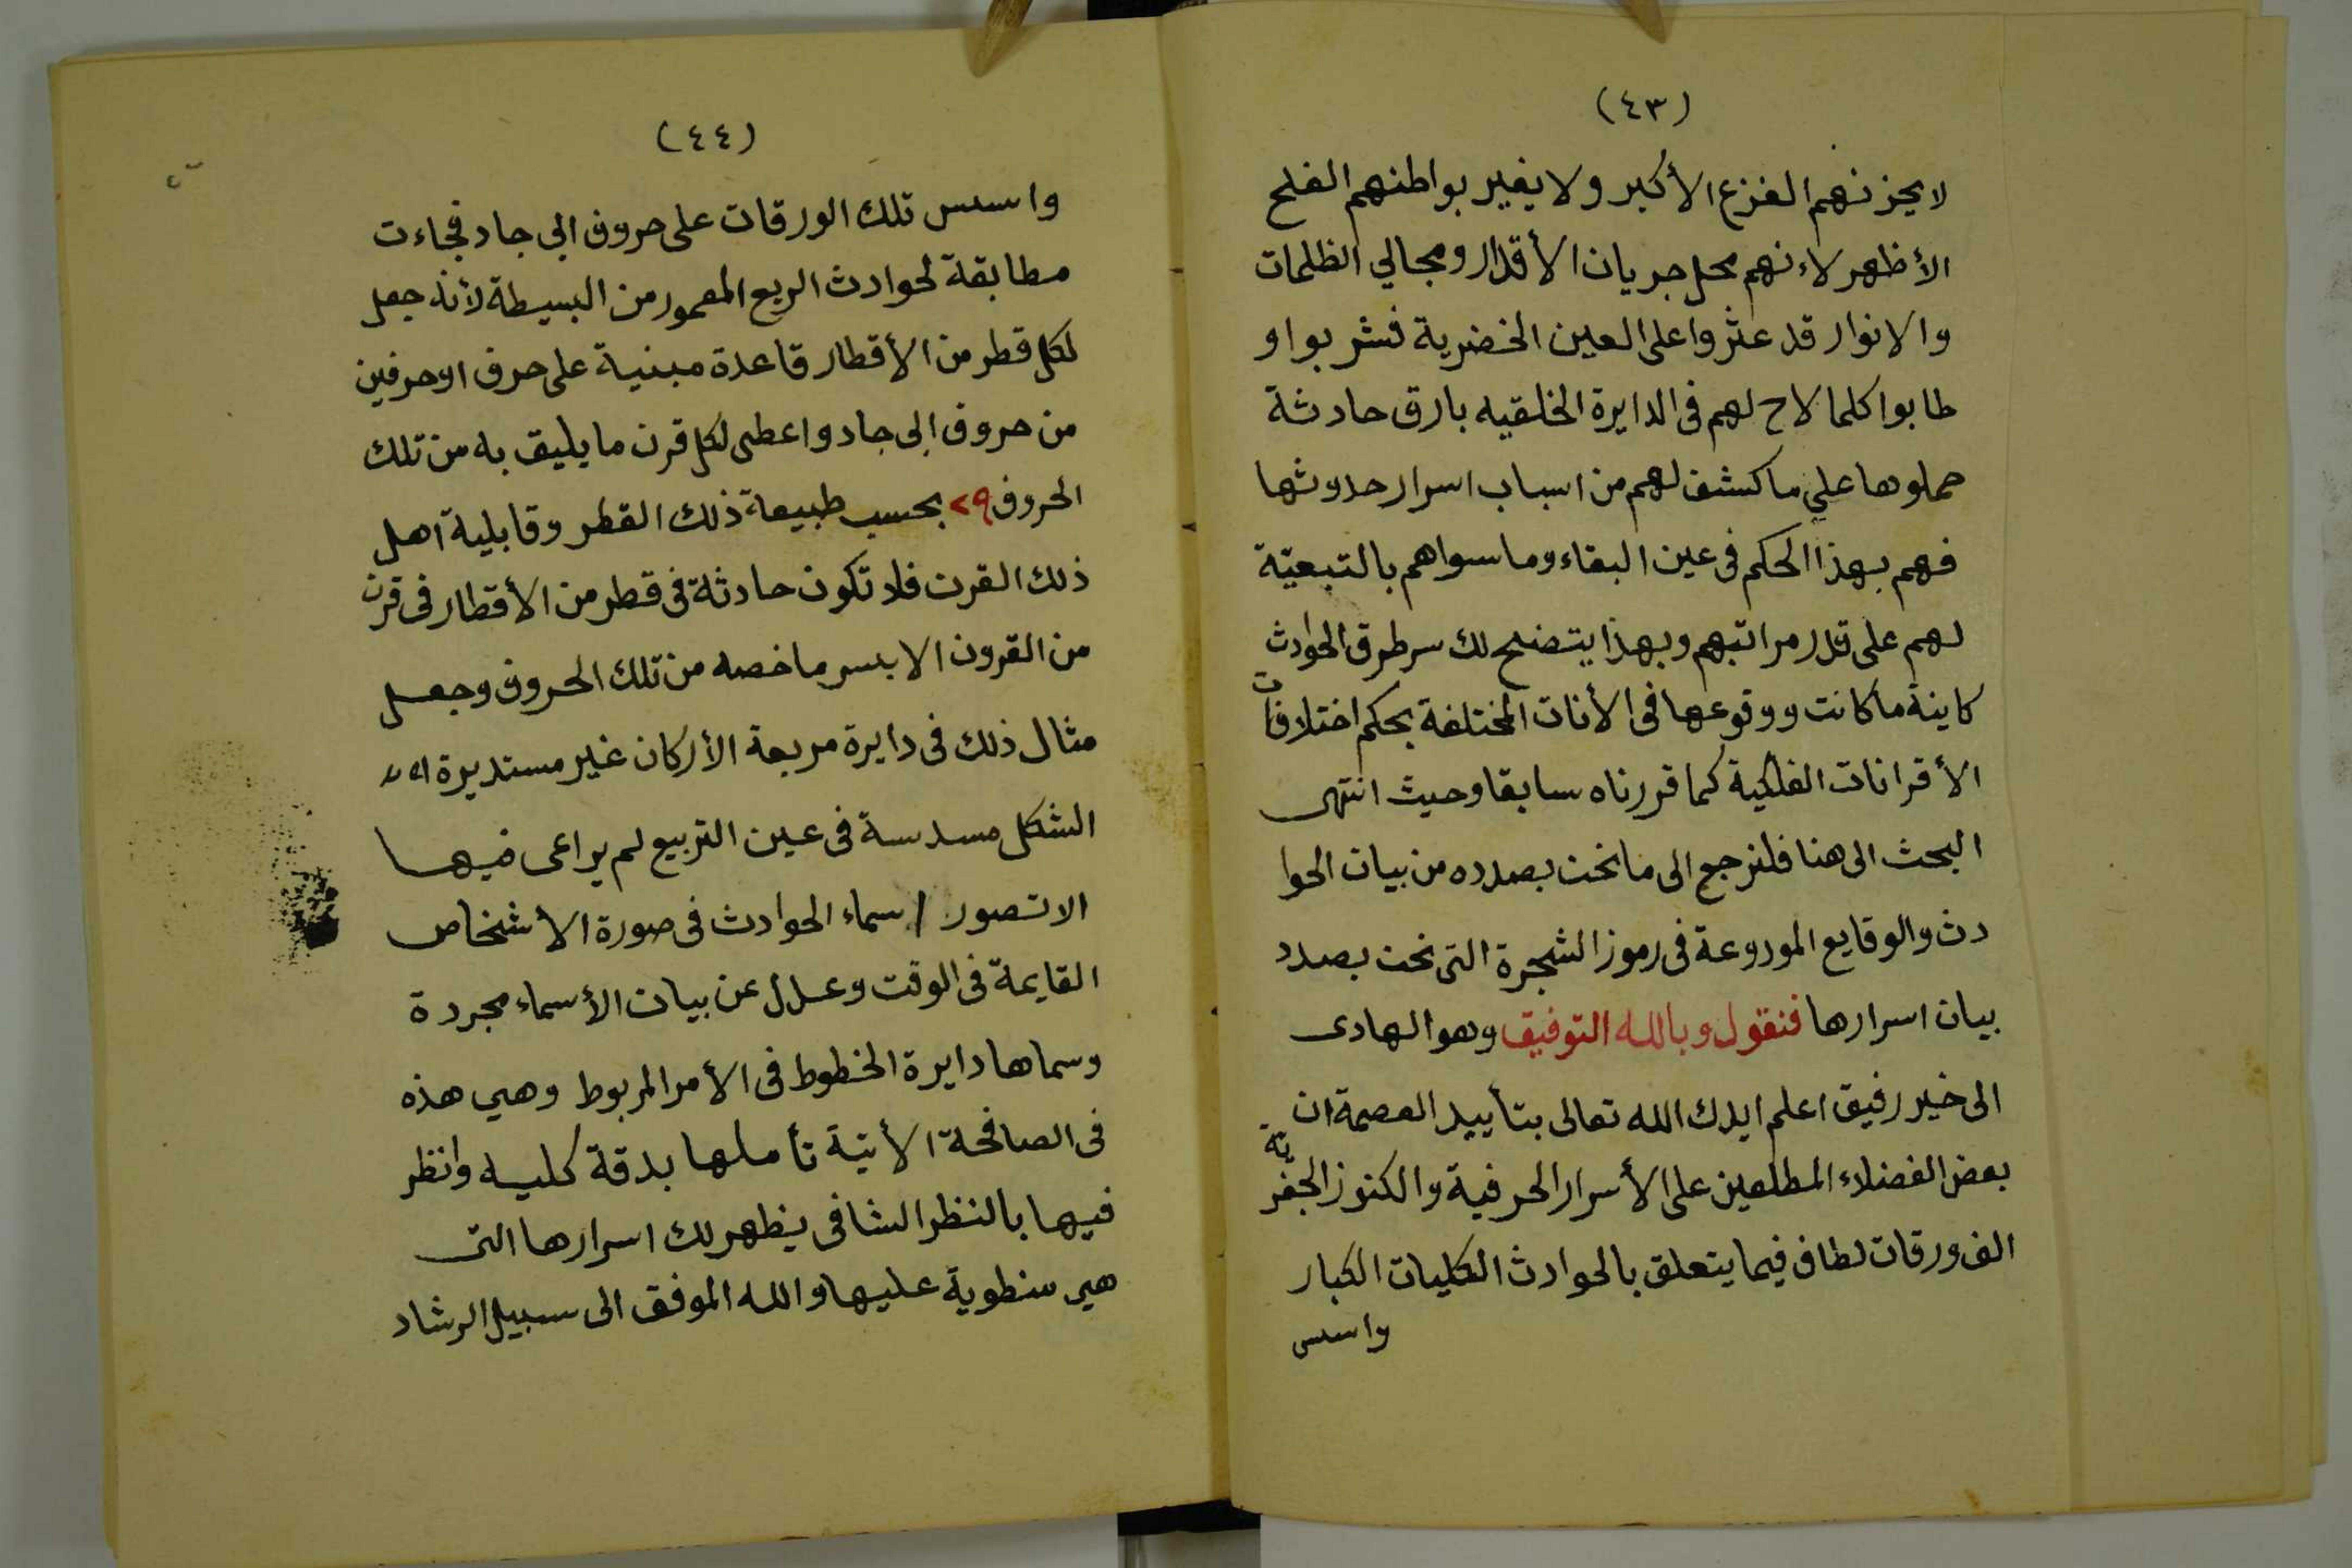 (٤٣)
لا يحزنهم الفزع الأكبر ولا يغير بواطنهم الفلح
الأظهر لاءنهم محل جريان الأقدار ومجالي الظلمات
والانوار قد عثروا على العين الخضرية فشربوا و
طابوا كلما لاح لهم فى الدايرة الخلقيه بارق حادثة
حملوها علي ما كشف لهم من اسباب اسرار حدوثها
فهم بهذا الحكم فى عين البقاء وما سواهم بالتبعيّة
لهم على قدر مراتبهم وبهذا يتضح لك سر طرق الحوادث
كاينة ما كانت ووقوعها فى الأنات المختلفة بحكم اختلافات
الأقرانات الفلكية كما قررناه سابقا وحيث انتهى
البحث الى هنا فلنرجع الى ما نحن بصدده من بيان الحوا
دث والوقايع المودوعة فى رموز الشجرة التى نحن بصدد
بيان اسرارها فنقول وبالله التوفيق وهو الهادى
الى خير رفيق اعلم ايدك الله تعالى بتأييد العصمة ان
بعض الفضلاء المطلعين على الأسرار الحرفية والكنوز الجفرية
الف ورقات لطاف فيما يتعلق بالحوادث الكليات الكبار
واسس
(٤٤)
واسس تلك الورقات على حروف ابي جاد فجاءت
مطابقة لحوادث الربع المعمور من البسيطة لأنه جعل
لكل قطر من الأقطار قاعدة مبنية على حرف او حرفين
من حروف ابى جاد واعطى لكل قرن ما يليق به من تلك
الحروف بحسب طبيعة ذلك القطر وقابلية اهل
ذلك القرن فلا تكون حادثة فى قطر من الأقطار فى قرن
من القرون الا بسر ما خصه من تلك الحروف وجعل
مثال ذلك فى دايرة مربعة الأركان غير مستديرة
الشكل مسدسة فى عين التربيع لم يراعى فيها
الا تصور اسماء الحوادث فى صورة الأشخاص
القايمة فى الوقت وعدل عن بيان الأسماء مجردة
وسماها دايرة الخطوط فى الأمر المربوط وهي هذه
فى الصافحة الأتية تأملها بدقة كليه وانظر
فيها بالنظر الشافى يظهر لك اسرارها التى
هي منطوية عليها والله الموفق الى سبيل الرشاد